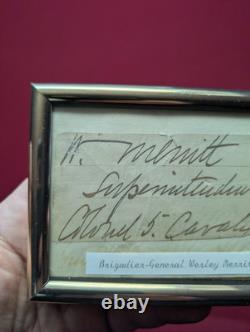 W. Merritt
Superintenden
Colonel 5. Caval
Brigadier-General Wesley Merri